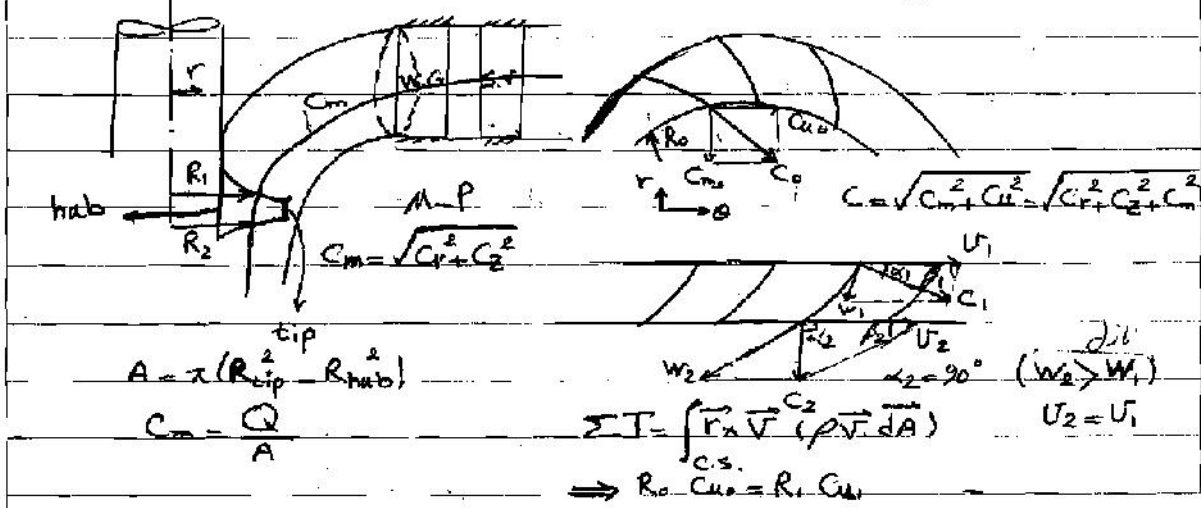 r
Cm
W.G
S.V
R₁
R₂
hub
tip
M-P
Cm = √(Cr² + Cz²)
A = π(R²tip - R²hub)
Cm = Q/A
R₀
Cu₀
Cm₀
C₀
r
θ
C = √(Cm² + Cu²) = √(Cr² + Cz² + Cm²)
U₁
α₁
w₁
C₁
α₂
β₂
U₂
W₂
C₂
α₂ = 90°
(W₂ > W₁)
U₂ = U₁
ΣT = ∫c.s. r⃗ × V⃗ (ρV⃗. dA⃗)
⟹ R₀ Cu₀ = R₁ Cu₁